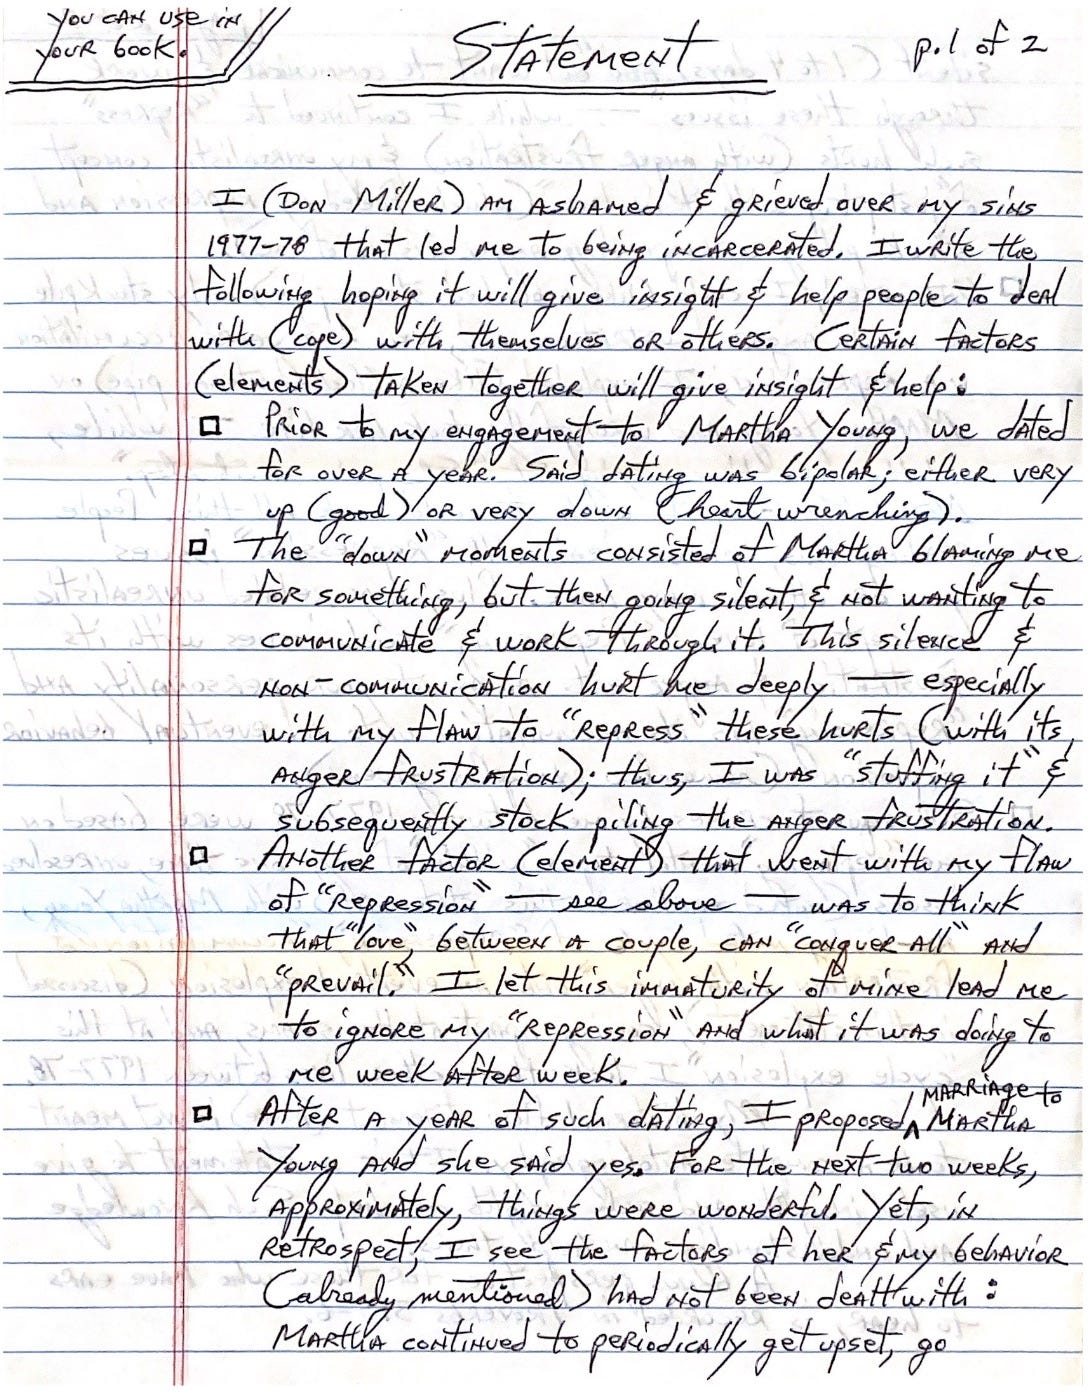 You can use in
your book.
Statement
p.1 of 2
I (Don Miller) am ashamed & grieved over my sins
1977-78 that led me to being incarcerated. I write the
following hoping it will give insight & help people to deal
with (cope) with themselves or others. Certain factors
(elements) taken together will give insight & help:
Prior to my engagement to Martha Young, we dated
for over a year. Said dating was bipolar; either very
up (good) or very down (heart wrenching).
The "down" moments consisted of Martha blaming me
for something, but then going silent, & not wanting to
communicate & work through it. This silence &
non-communication hurt me deeply — especially
with my flaw to "repress" these hurts (with its
anger/frustration); thus, I was "stuffing it" &
subsequently stock piling the anger frustration.
Another factor (element) that went with my flaw
of "repression" — see above — was to think
that "love", between a couple, can "conquer all" and
"prevail." I let this immaturity of mine lead me
to ignore my "repression" and what it was doing to
me week after week.
After a year of such dating, I proposed marriage to Martha
Young and she said yes. For the next two weeks,
approximately, things were wonderful. Yet, in
retrospect, I see the factors of her & my behavior
(already mentioned) had not been dealt with:
Martha continued to periodically get upset, go